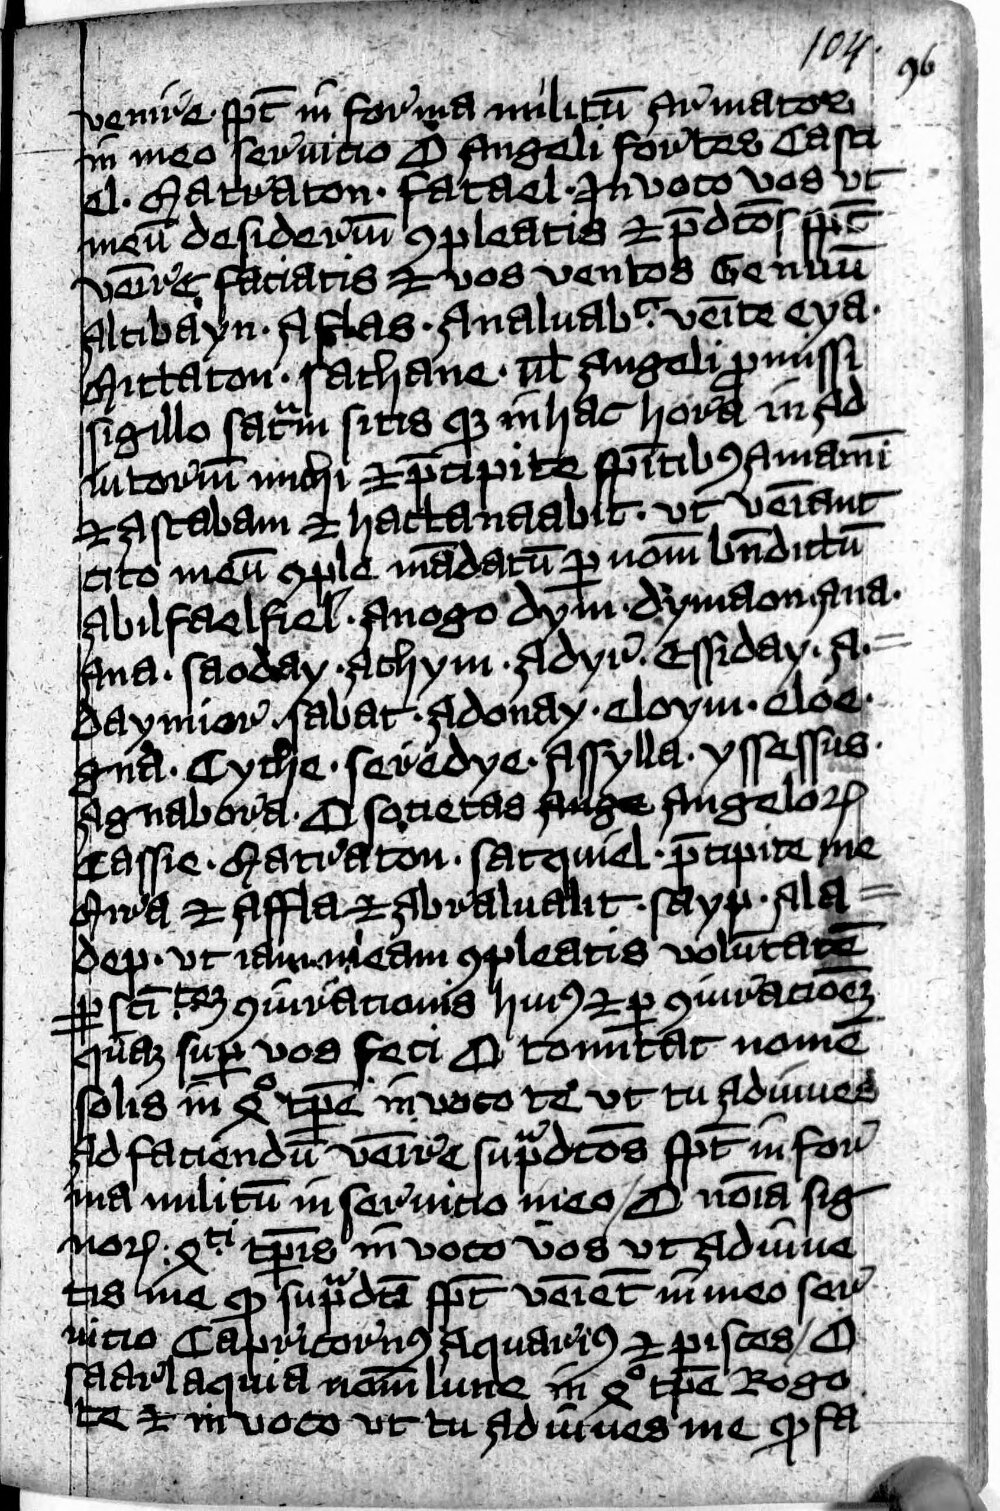 104.
96
venire spc̄t in forma militū armator
in meo seruicio O angeli fortes Casci
el. Matraton. Satael. Inuoco vos vt
meū desideriū ꝯpleatis et p̄dcōs spc̄t
veīre faciatis et vos ventos Geminū
altibayn. Aflas. Analuabt. veīte eya.
Mittaton. sathane. ul̄ angeli ꝓmissi
sigillo sat'ni sitis qꝫ in hac hora in ad
iutoriū michi et p̄cipite sp̄itibꝰ amarnī
et Astabam et hactanaabit. vt veīant
cito meū ꝯple mādatū ꝑ nom̄ bn̄dictū
Abilfaelfiel. Anogo dym. dymaon. Ana.
Ana. saoday. Achym. Adyr. Essiday. A. =
daymior. sabat. Adonay. eloym. eloe.
gna. Cythe. seredye. Assylla. yssessus.
Agnabora. O societas ange angeloꝝ
Cassie. Matraton. satquiel. p̄cipite me
Mira et Affla et Abraluahit. sayp. Ala =
dep. vt iam meam ꝯpleatis volūtatē
ꝑ sc̄itatēꝫ ꝯiurationis huiꝰ et ꝑ ꝯiuracioēꝫ
quaꝫ suꝑ vos feci O tonnitat nomē
solis in 4º tꝑe inuoco te vt tu adiuues
ad faciendū veīre sup̄dcōs spc̄t in for
ma militū in seruicio meo / O nōia sig
noꝝ. 4ti tꝑis inuoco vos vt adiuue
tis me qꝫ sup̄dcā spc̄t veīet in meo ser
uicio Capricornꝰ aquariꝰ et pisces / O
saarlaquia nom̄ lune in 4º tꝑe Rogo
te et inuoco vt tu adiuues me qꝫ fa